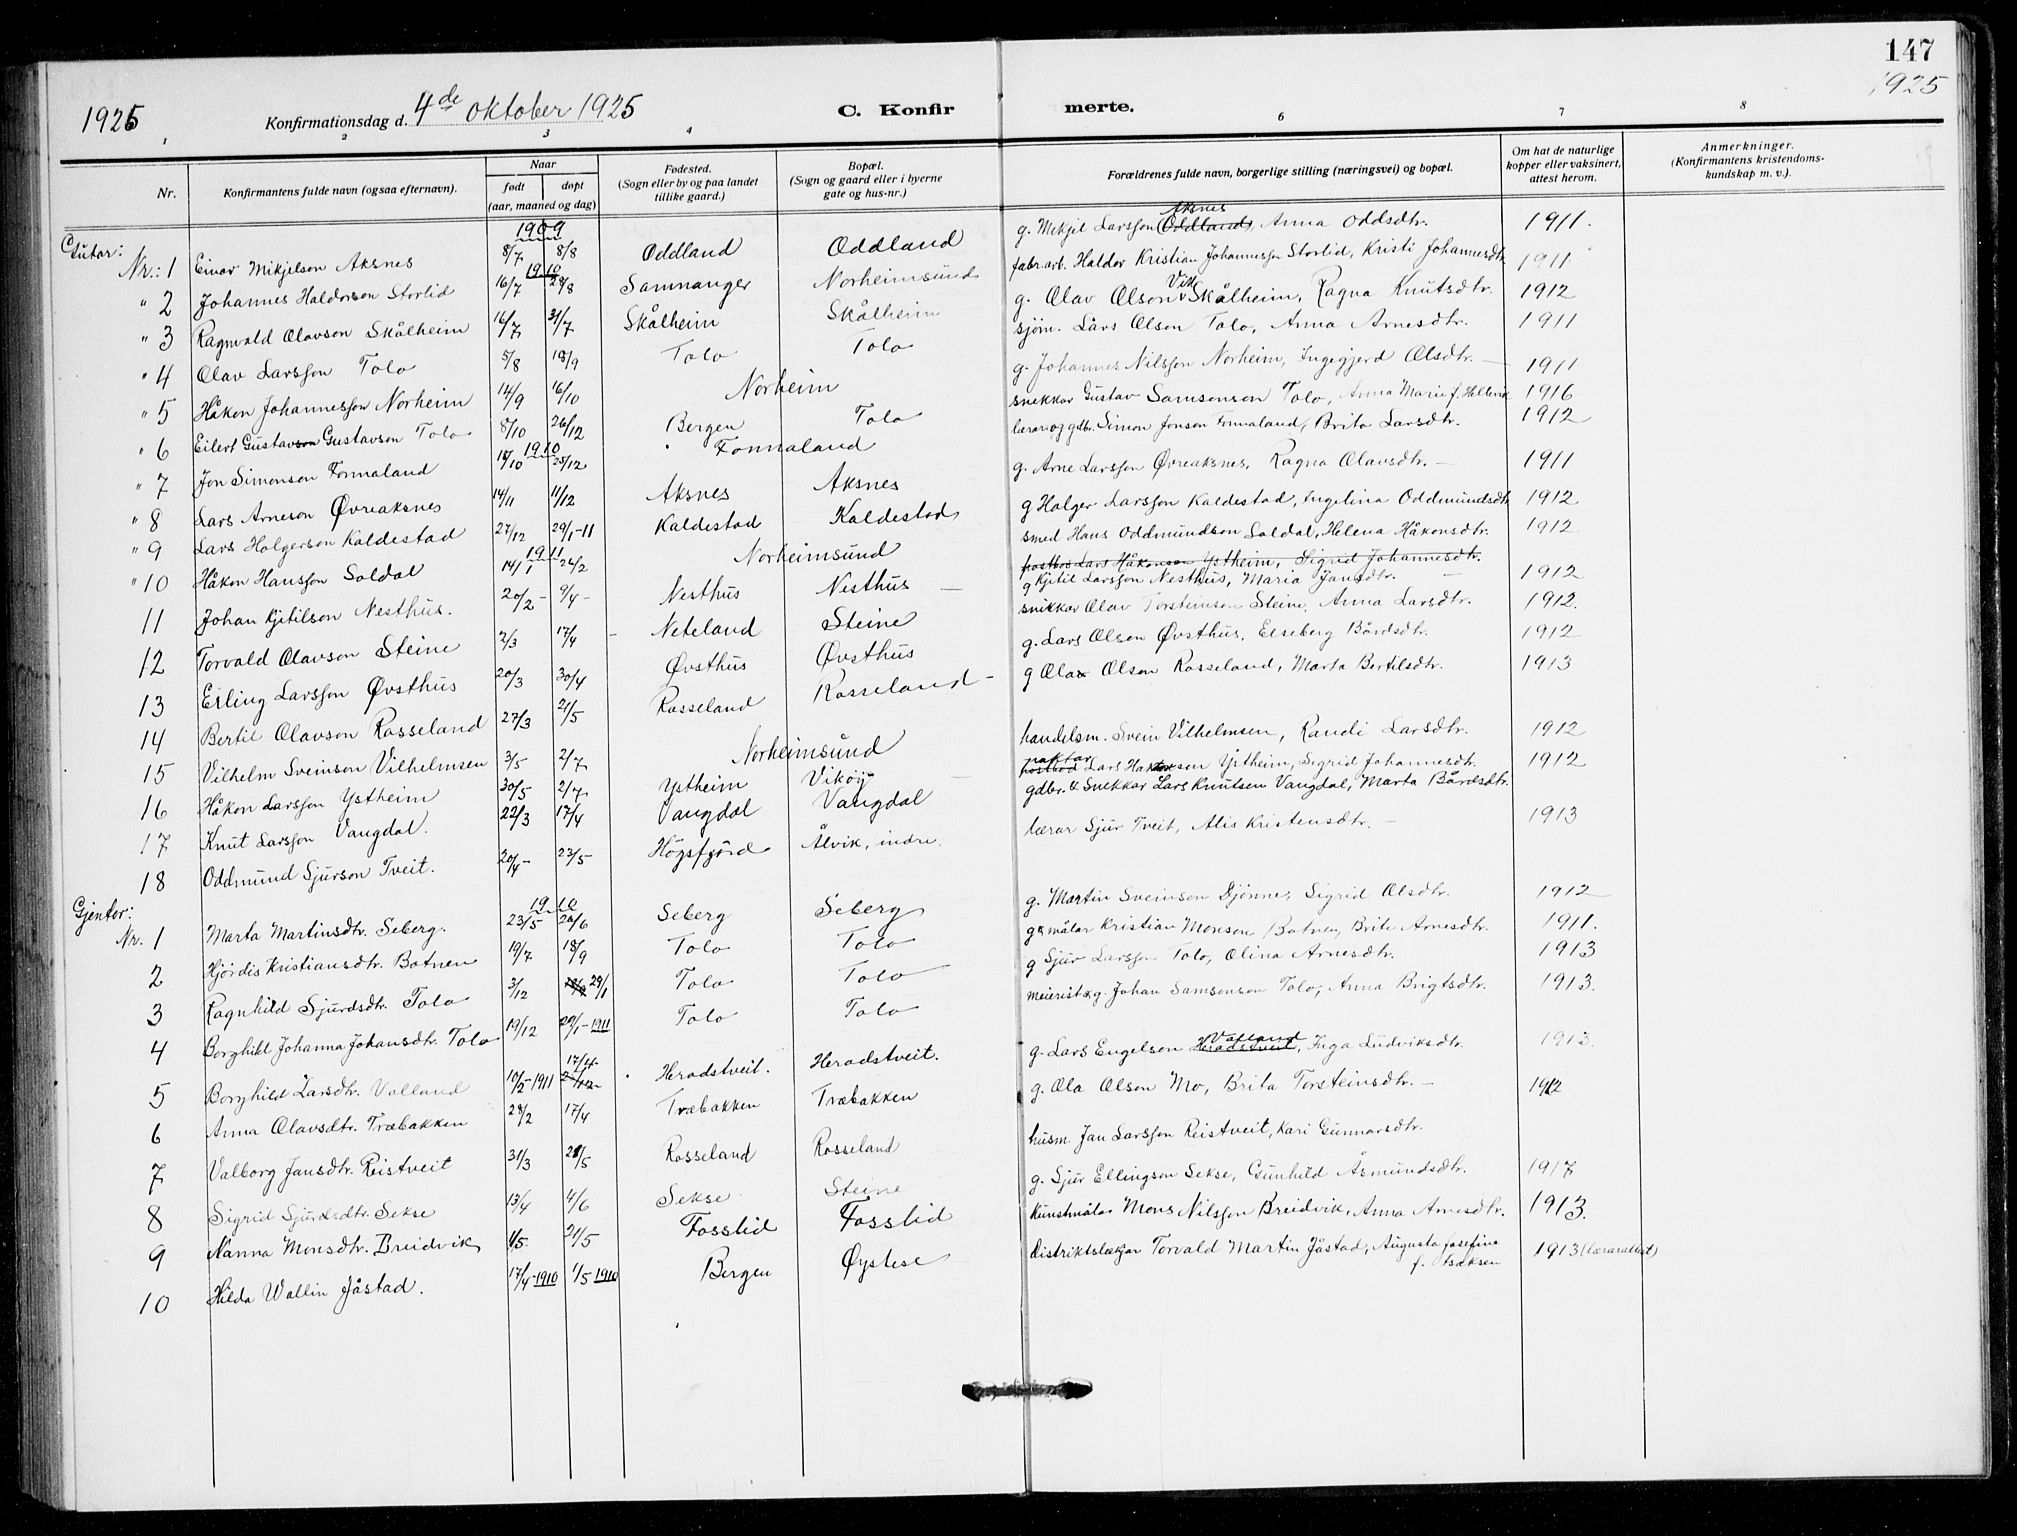 147
1925
1925 Konfirmationsdag d. 4de oktober 1925 C. Konfirmerte.
1 2 3 4 6 7 8
Nr. Konfirmantens fulde navn (ogsaa efternavn). Naar født døpt (aar, maaned og dag) Fødested. (Sogn eller by og paa landet tillike gaard.) Bopæl. (Sogn og gaard eller i byerne gate og hus-nr.) Forældrenes fulde navn, borgerlige stilling (næringsvei) og bopæl. Om hat de naturlige kopper eller vaksinert, attest herom. Anmerkninger. (Konfirmantens kristendoms-kundskap m. v.).
Gutar:
1909
Nr.: 1 Einar Mikjelson Aksnes 8/7 8/8 Oddland Oddland g. Mikjel Larsson Oddland Aksnes, Anna Oddsdtr. 1911.
1910
" 2 Johannes Haldorson Storlid 16/7 28/8 Samnanger Norheimsund fabr.arb. Haldor Kristian Johannesson Storlid, Kristi Johannesdtr. 1911
" 3 Ragnvald Olavson Skålheim 16/7 31/7 Skålheim Skålheim g. Olav Olson Vik Skålheim, Ragna Knutsdtr. 1912
" 4 Olav Larsson Tolo 5/8 18/9 Tolo Tolo sjøm. Lars Olson Tolo, Anna Arnesdtr. 1911
" 5 Håkon Johannesson Norheim 14/9 16/10 Norheim g. Johannes Nilsson Norheim, Ingegjerd Olsdtr. — 1911
" 6 Eilert Gustavson Gustavson Tolo 8/10 26/12 Bergen Tolo snekkar Gustav Samsonson Tolo, Anna Marie f. Hellevik 1916
1910
" 7 Jon Simonson Fonnaland 18/10 25/12 Fonnaland lærar og gdbr. Simon Jonson Fonnaland, Brita Larsdtr. 1912
" 8 Lars Arneson Øvreaksnes 14/11 11/12 Aksnes Aksnes g. Arne Larsson Øvreaksnes, Ragna Olavsdtr. — 1911
" 9 Lars Holgerson Kaldestad 27/12 29/1-11 Kaldestad Kaldestad g Holger Larsson Kaldestad, Ingelina Oddmundsdtr 1912
1911
" 10 Håkon Hansson Soldal 14/1 26/2 Norheimsund smed Hans Oddmundson Soldal, Helena Håkonsdtr. 1912
postbos Lars Håkonson Ystheim, Sigrid Johannesdtr.
11 Johan Kjetilson Nesthus. 20/2 - 9/4 - Nesthus Nesthus — g Kjetil Larsson Nesthus, Maria Jansdtr. — 1912
12 Torvald Olavson Steine 2/3 17/4 - Neteland Steine snikkar Olav Torsteinson Steine, Anna Larsdtr. 1912.
13 Erling Larsson Øvsthus 20/3 30/4 Øvsthus Øvsthus g. Lars Olson Øvsthus, Elseberg Bårdsdtr. 1912
14 Bertil Olavson Rosseland 27/3 21/5 Rosseland Rosseland - g Ola Olson Rosseland, Marta Bertilsdtr. 1913
15 Vilhelm Sveinson Vilhelmsen 3/5 2/7 Norheimsund handelsm. Svein Vilhelmsen, Randi Larsdtr. 1912
16 Håkon Larsson Ystheim 30/5 2/7 Ystheim Vikøy — postbod Lars Håkonson Ystheim, Sigrid Johannesdtr. 1912
17 Knut Larsson Vangdal. 22/3 17/4 Vangdal Vangdal gdbr. & Snekkar Lars Knutsen Vangdal, Marta Bårdsdtr.
18 Oddmund Sjurson Tveit. 20/4 - 23/5 - Högsfjord Ålvik, indre. lærar Sjur Tveit, Alis Kristensdtr. — 1913
Gjentor:
1910
Nr. 1 Marta Martinsdtr. Seberg. 23/5 26/6 Seberg Seberg g. Martin Sveinson Djønne, Sigrid Olsdtr. 1912
2 Hjørdis Kristiansdtr. Botnen 19/7 18/9 Tolo Tolo g & målar Kristian Monson Botnen, Brite Arnesdtr. 1911.
3 Ragnhild Sjursdtr. Tolo 3/12 29/1 Tolo Tolo g Sjur Larsson Tolo, Olina Arnesdtr. 1913
4 Borghild Johanna Johansdtr. Tolo 19/12 29/1-1911 Tolo Tolo meierist & g. Johan Samsonson Tolo, Anna Brigtsdtr. 1913.
5 Borghild Larsdtr. Valland 10/2-1911 17/4 Heradstveit. Heradstveit. g. Lars Engelson Heradstveit Valland, Inga Ludviksdtr. 1913.
6 Anna Olavsdtr. Træbakken 28/2 17/4 Træbakken Træbakken g. Ola Olson Mo, Brita Torsteinsdtr. — 1912
7 Valborg Jansdtr. Reistveit 31/3 28/5 Rosseland Rosseland husm. Jan Larsson Reistveit, Kari Gunnarsdtr.
8 Sigrid Sjursdtr. Sekse 13/4 4/6 Sekse Steine g. Sjur Ellingson Sekse, Gunhild Åsmundsdtr. 1917
9 Nanna Monsdtr. Breidvik 1/5 21/5 Fosslid Fosslid Kunstmålar Mons Nilsson Breidvik, Anna Arnesdtr. 1913.
10 Hilda Wallin Jåstad. 17/4-1910 1/5 1910 Bergen Øystese Distriktslækjar Torvald Martin Jåstad, Augusta Josefine f. Isaksen 1913 (lærarattest)